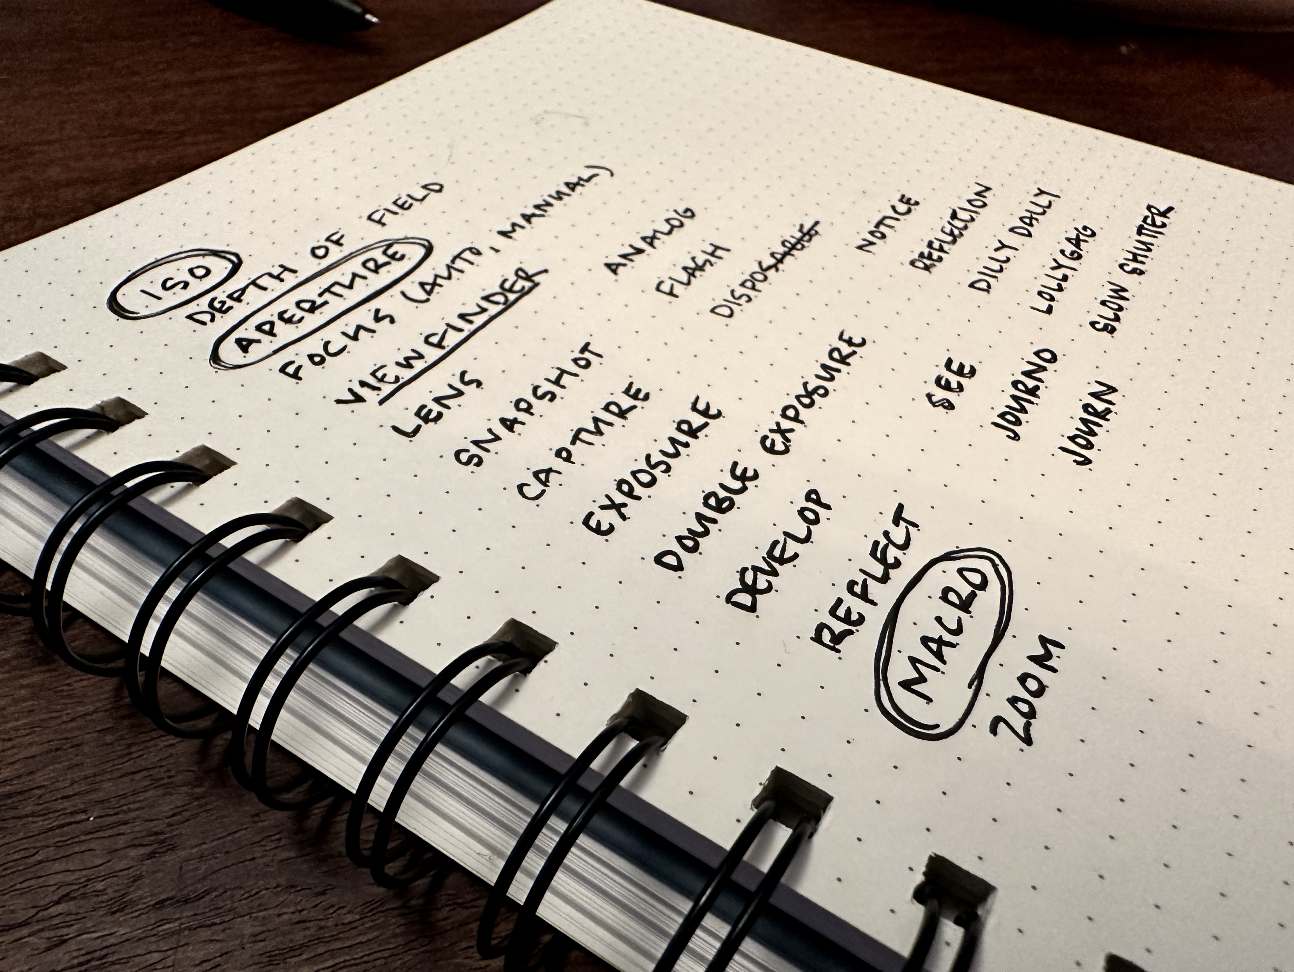 ISO
DEPTH OF FIELD
APERTURE
FOCUS (AUTO, MANUAL)
VIEWFINDER
LENS
SNAPSHOT
CAPTURE
EXPOSURE
DOUBLE EXPOSURE
DEVELOP
REFLECT
MACRO
ZOOM
ANALOG
FLASH
DISPOSABLE
NOTICE
REFLECTION
DILLY DALLY
LOLLYGAG
SLOW SHUTTER
SEE
JOURNO
JOURN